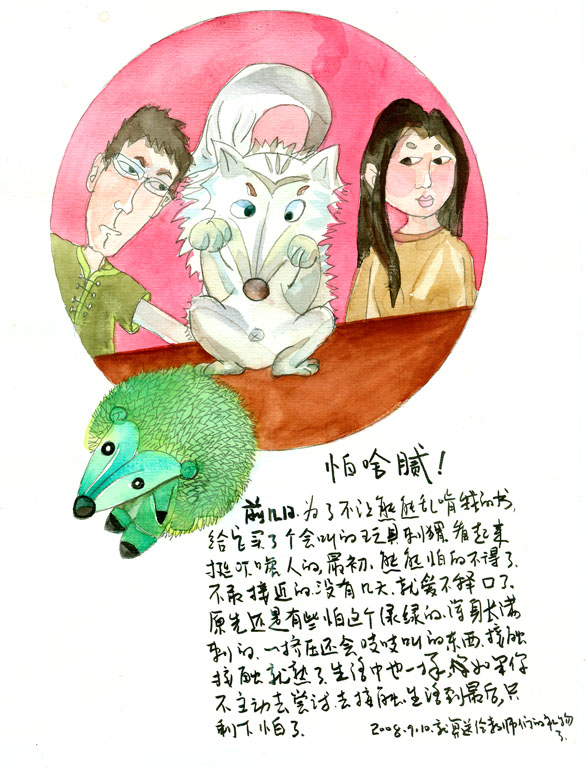 怕啥腻！
前几日，为了不让熊熊乱啃我的书，
给它买了个会叫的玩具刺猬，看起来
挺吓唬人的。最初，熊熊怕的不得了，
不敢接近的，没有几天，就爱不释口了。
原先还是有些怕这个绿绿的，浑身长满
刺的，一挤压还会吱吱叫的东西，接触
接触就熟了。生活中也一样，如果你
不主动去尝试，去接触，生活到最后，只
剩下怕了。
2008.9.10.就算送给教师们的礼物
了.